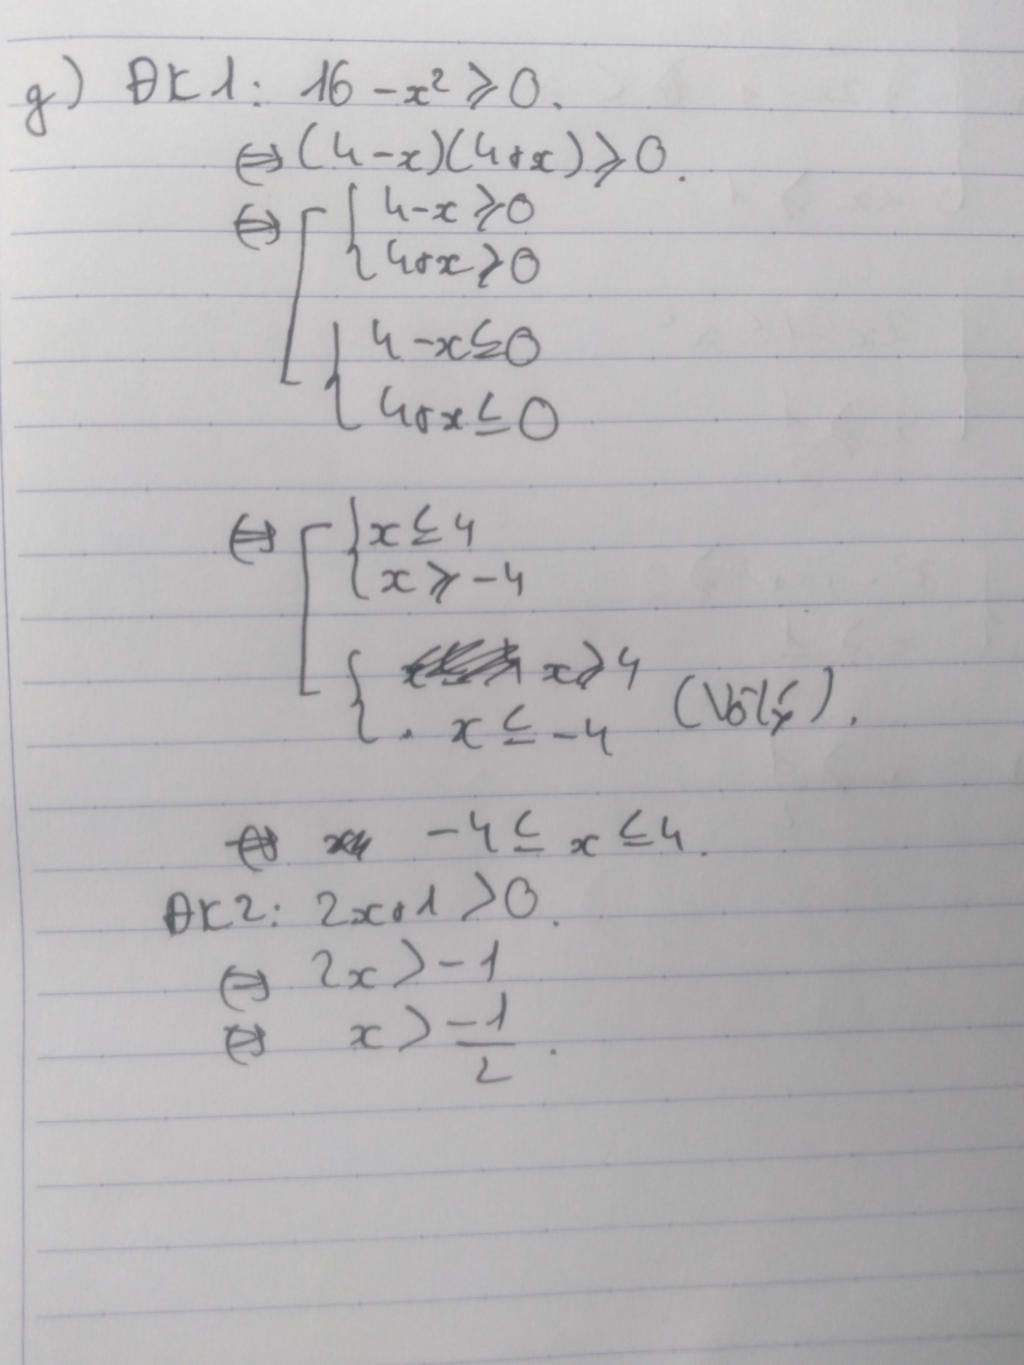 g) ĐK1: 16 - x² ⩾ 0.
⇔ (4-x)(4+x) ⩾ 0.
⇔ [ { 4-x ⩾ 0
4+x ⩾ 0
{ 4-x ≤ 0
4+x ≤ 0
⇔ [ { x ≤ 4
x ⩾ -4
{ x ⩾ 4
x ≤ -4 (Vô lý).
⇔ -4 ≤ x ≤ 4.
ĐK2: 2x+1 > 0.
⇔ 2x > -1
⇔ x > -1/2.